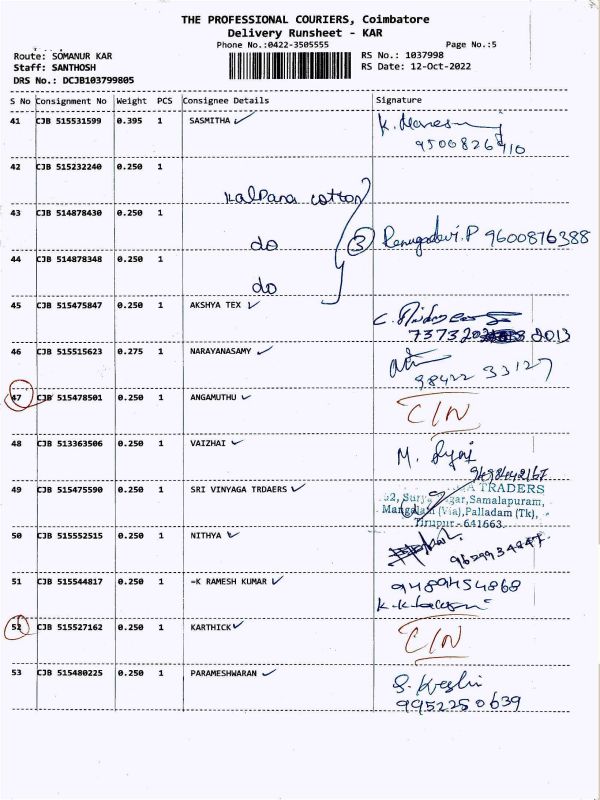 THE PROFESSIONAL COURIERS, Coimbatore
Delivery Runsheet - KAR
Phone No.:0422-3505555
Page No.:5
Route: SOMANUR KAR
RS No.: 1037998
Staff: SANTHOSH
RS Date: 12-Oct-2022
DRS No.: DCJB103799805
S No Consignment No Weight PCS Consignee Details Signature
41 CJB 515531599 0.395 1 SASMITHA ✓
9500826910
42 CJB 515232240 0.250 1
Kalpana cotton
43 CJB 514878430 0.250 1
do 3 Renugadevi.P 9600876388
44 CJB 514878348 0.250 1
do
45 CJB 515475847 0.250 1 AKSHYA TEX ✓
46 CJB 515515623 0.275 1 NARAYANASAMY ✓
98422 33127
47 CJB 515478501 0.250 1 ANGAMUTHU ✓ C/N
48 CJB 513363506 0.250 1 VAIZHAI ✓ M.
49 CJB 515475590 0.250 1 SRI VINYAGA TRDAERS ✓
TRADERS
Samalapuram,
(Via),Palladam (Tk),
Tirupur - 641663.
50 CJB 515552515 0.250 1 NITHYA ✓
51 CJB 515544817 0.250 1 =K RAMESH KUMAR ✓ 9489454868
52 CJB 515527162 0.250 1 KARTHICK ✓ C/N
53 CJB 515480225 0.250 1 PARAMESHWARAN ✓
9952250639